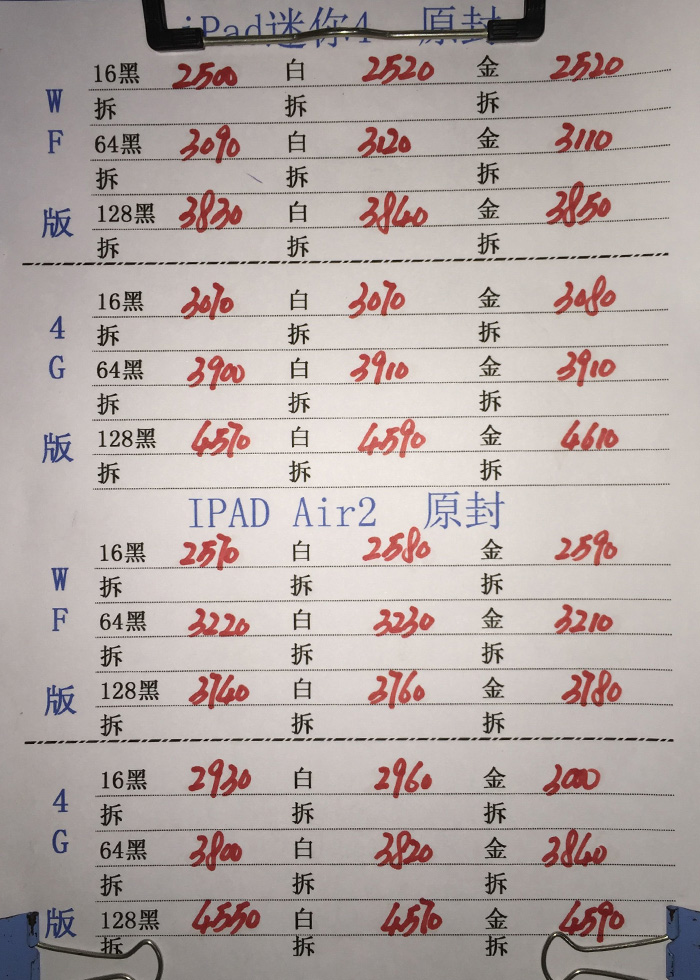 iPad迷你4 原封
WF版
16黑 2500 白 2520 金 2520
拆 拆 拆
64黑 3090 白 3120 金 3110
拆 拆 拆
128黑 3830 白 3840 金 3850
拆 拆 拆
4G版
16黑 3070 白 3070 金 3080
拆 拆 拆
64黑 3900 白 3910 金 3910
拆 拆 拆
128黑 4570 白 4590 金 4610
拆 拆 拆
IPAD Air2 原封
WF版
16黑 2570 白 2580 金 2590
拆 拆 拆
64黑 3220 白 3230 金 3210
拆 拆 拆
128黑 3740 白 3760 金 3780
拆 拆 拆
4G版
16黑 2930 白 2960 金 3000
拆 拆 拆
64黑 3800 白 3820 金 3840
拆 拆 拆
128黑 4550 白 4570 金 4590
拆 拆 拆